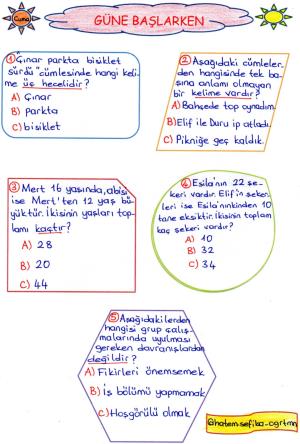 Cuma
GÜNE BAŞLARKEN
① "Çınar parkta bisiklet
sürdü" cümlesinde hangi keli-
me üç hecelidir?
A) Çınar
B) parkta
C) bisiklet
2. Aşağıdaki cümleler-
den hangisinde tek ba-
şına anlamı olmayan
bir kelime vardır?
A) Bahçede top oynadım.
B) Elif ile Duru ip atladı.
C) Pikniğe geç kaldık.
③ Mert 16 yaşında, abisi
ise Mert'ten 12 yaş bü-
yüktür. İkisinin yaşları top-
lamı kaçtır?
A) 28
B) 20
C) 44
④ Esila'nın 22 şe-
keri vardır. Elif'in şeker-
leri ise Esila'nınkinden 10
tane eksiktir. İkisinin toplam
kaç şekeri vardır?
A) 10
B) 32
C) 34
⑤ Aşağıdakilerden
hangisi grup çalış-
malarında uyulması
gereken davranışlardan
değildir?
A) Fikirleri önemsemek
B) İş bölümü yapmamak
C) Hoşgörülü olmak
@hatem_sefika_ogrtm